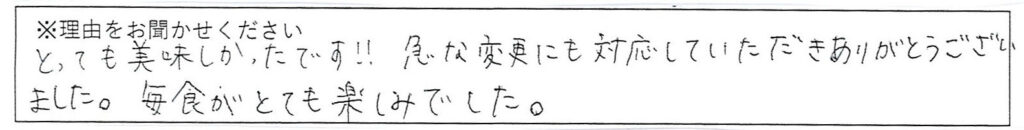 ※理由をお聞かせください
とっても美味しかったです!! 急な変更にも対応していただきありがとうござい
ました。毎食がとても楽しみでした。